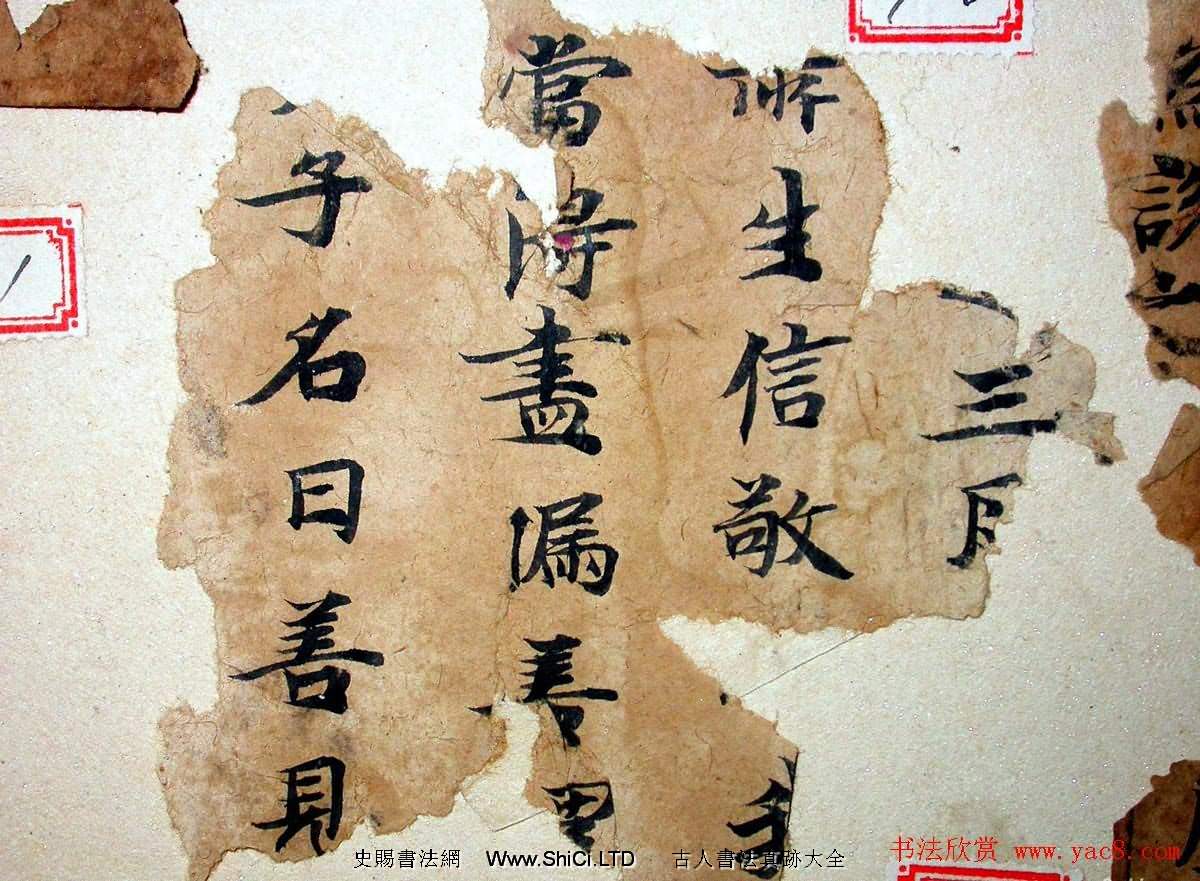 說
三
生信敬
當得盡漏善
子名曰善見
史賜書法網 Www.ShiCi.LTD 古人書法真跡大全
书法欣赏 www.yac8.com